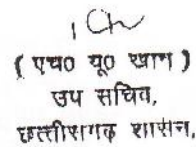 ( एच० यू० खान )
उप सचिव,
छत्तीसगढ़ शासन,